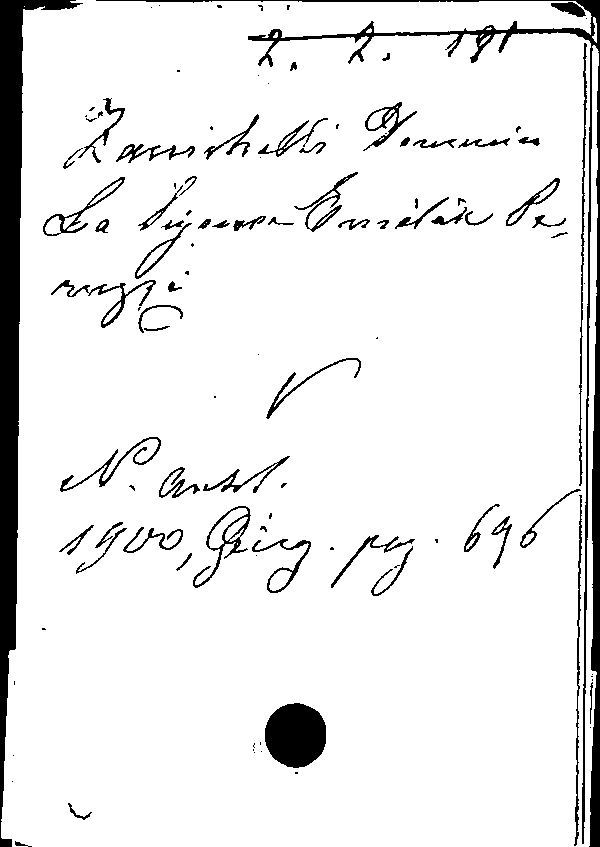 2. 2. 191
Zanichelli Domenico
La Signora Emilia Pe-
ruzzi
V
N. antol.
1900, Giug. pag. 696